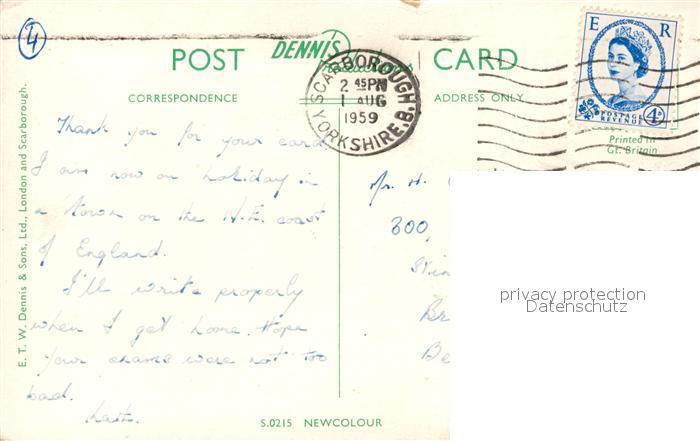 4
POST
DENNIS
CARD
E R
CORRESPONDENCE
ADDRESS ONLY
SCARBOROUGH
2 45PM
1 AUG
1959
YORKSHIRE.B.
POSTAGE
REVENUE
4D
Printed in
Gt. Britain
Thank you for your card.
I am now on holiday in
a town on the N.E. coast
of England.
I'll write properly
when I get home. Hope
your exams were not too
bad.
Mr. H.
300,
Br
Be
privacy protection
Datenschutz
E. T. W. Dennis & Sons, Ltd., London and Scarborough.
S.0215 NEWCOLOUR